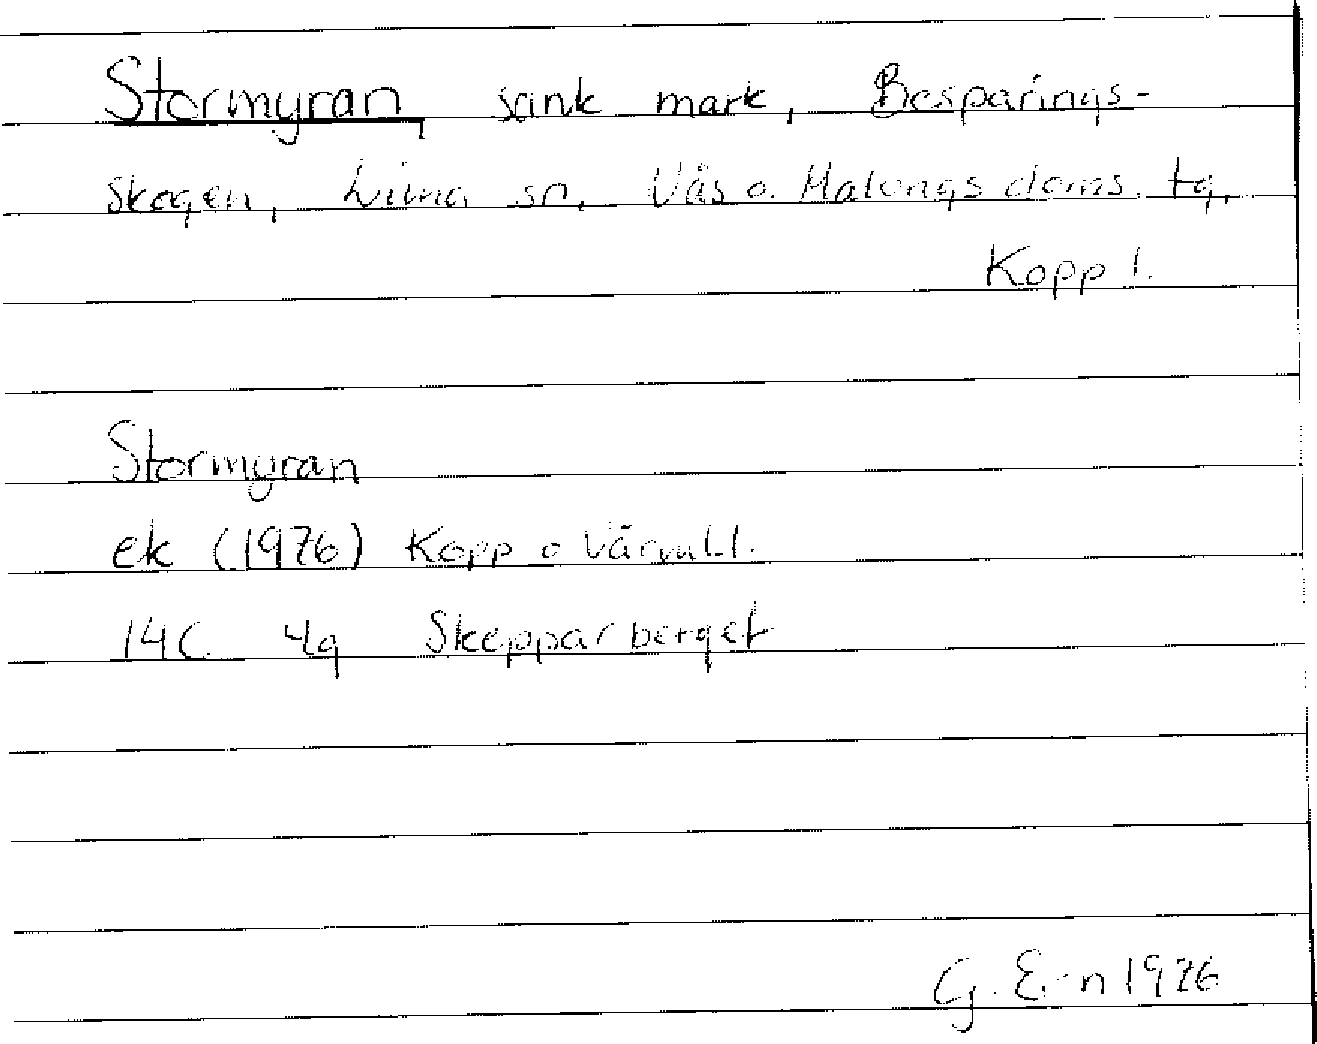 Stormyran, sank mark, Besparings-
skogen, Lima sn, Nås o. Malungs doms. tg,
Kopp l.
Stormyran
ek (1976) Kopp o Värml l.
14C 4g Skepparberget
G. E-n 1976